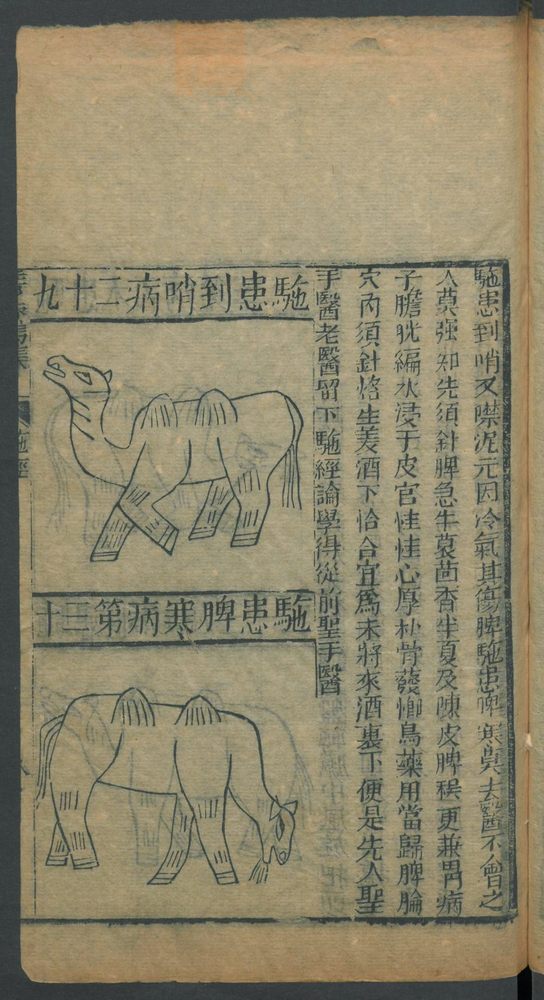 駞患到哨又噤泥元因冷氣其傷脾駞患脾寒莫去醫不曾之
人莫強知先須針脾急牛蒡茴香半夏及陳皮脾䐈更兼胃病
子膽胱編水浸于皮官桂桂心厚朴骨藜懰烏藥用當歸脾腧
穴內須針烙生姜酒下恰合宜爲未將來酒裹下便是先人聖
手醫老醫留下駞經論學得從前聖手醫
駞患到哨病二十九
駞患脾寒病第三十
駞經